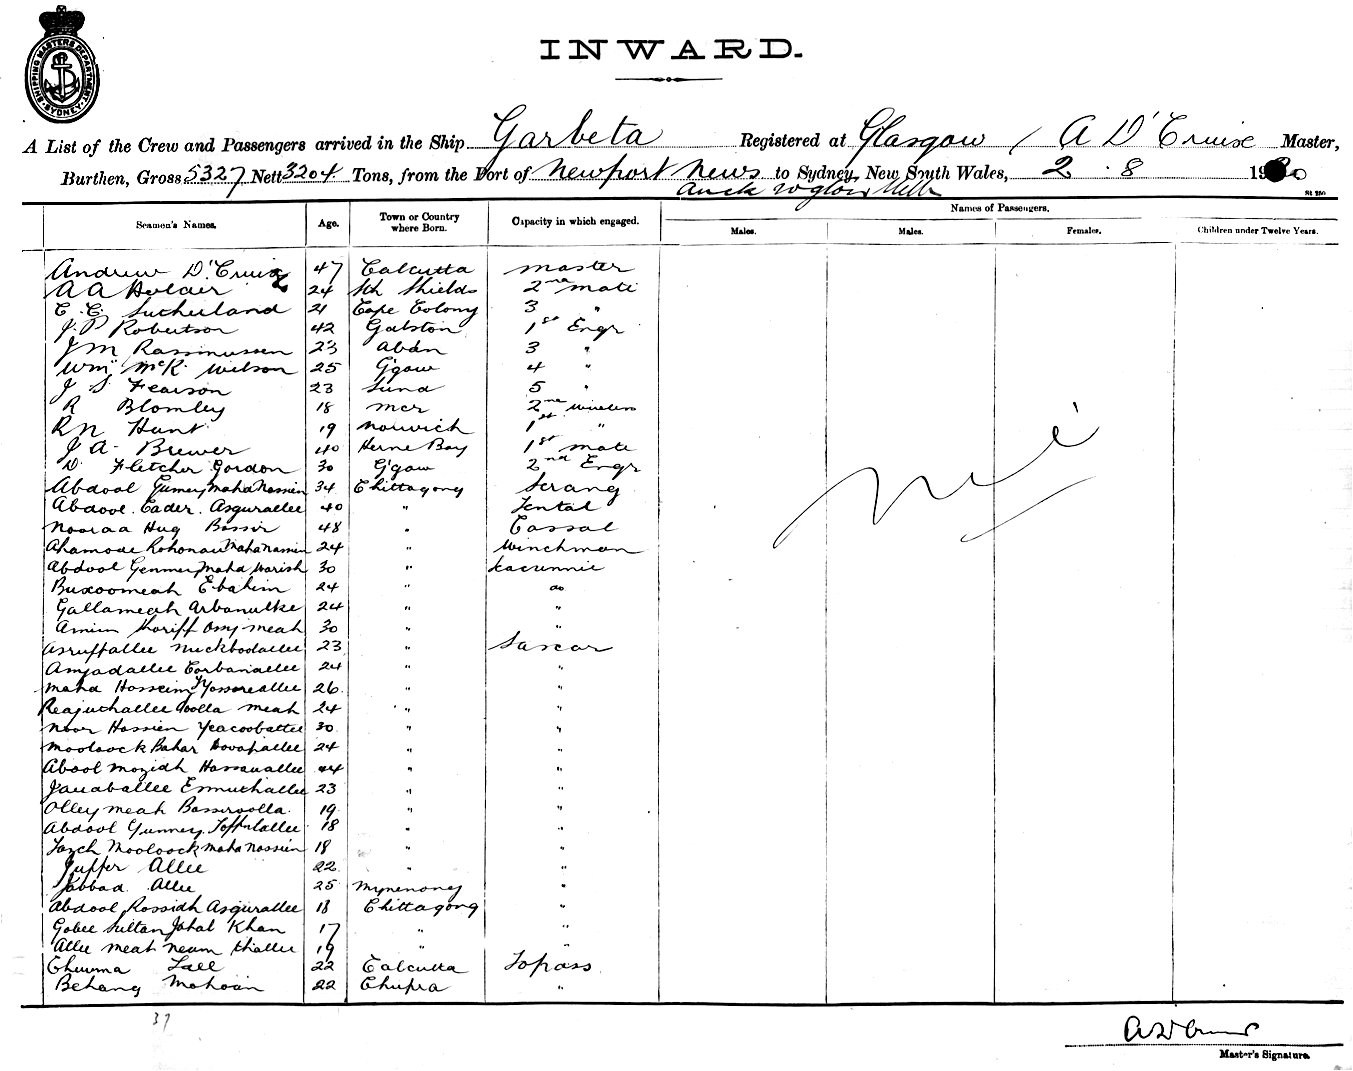 SHIPPING MASTERS DEPARTMENT SYDNEY
INWARD.
A List of the Crew and Passengers arrived in the Ship Garbeta Registered at Glasgow / A D'Cruise Master,
Burthen, Gross 5327 Nett 3204 Tons, from the Port of Newport News to Sydney, New South Wales, 2. 8 19
Seamen's Names. Age. Town or Country where Born. Capacity in which engaged. Names of Passengers.
Males. Males. Females. Children under Twelve Years.
Andrew D'Cruise 47 Calcutta Master
A A 24 Sth Shields 2nd Mate
C. C. Sutherland 21 Cape Colony 3 "
J. P Robertson 42 Galston 1st Engr
J M Rassmussen 23 3 "
Wm McK. Wilson 25 G'gow 4 "
J S Fearson 23 Sund 5 "
R Blomley 18 Mcr 2nd Wireless
R N Hunt 19 Norwich 1st "
J A Brewer 40 Herne Bay 1st Mate
D. Fletcher Gordon 30 G'gow 2nd Engr
Abdool Gumey Maha Nassien 34 Chittagong Serang
Abdool Cader Asgurallee 40 " Tental
Nooraa Hug Bassir 48 " Cassal
Ahamode Rohonau Maha Nassien 24 " Winchman
Abdool Genmey Maha Warish 30 "
Buxoomeah Ebahim 24 " do
Gallameah Arbanulke 24 " "
Amien Shariff Ossy meah 30 " "
Asruffallee Muckbodallee 23 " Lascar
Amjadallee Corbanallee 24 " "
Maha Hossein Yossoreallee 26 " "
Reajuthallee Goolla Meah 24 " "
Noor Hossien Yeacoobattee 30 " "
Mooloock Bahar Dovapallee 24 " "
Abool Mozidh Hassanallee 24 " "
Janaballee Esmuthallee 23 " "
Olley meah Bassiroolla 19 " "
Abdool Gunney Toffulallee 18 " "
Tozeh Mooloock Maha Nassien 18 " "
Juffer Allee 22 " "
Jabbad Allee 25 Mymenong "
Abdool Rossidh Asgurallee 18 Chittagong "
Golee Sultan Jahal Khan 17 " "
Allee Meah Neam Shallee 19 " "
Chuuma Lall 22 Calcutta Topass
Behang Mahoan 22 Chupra "
Nil
37
A D'Cruise
Master's Signature.